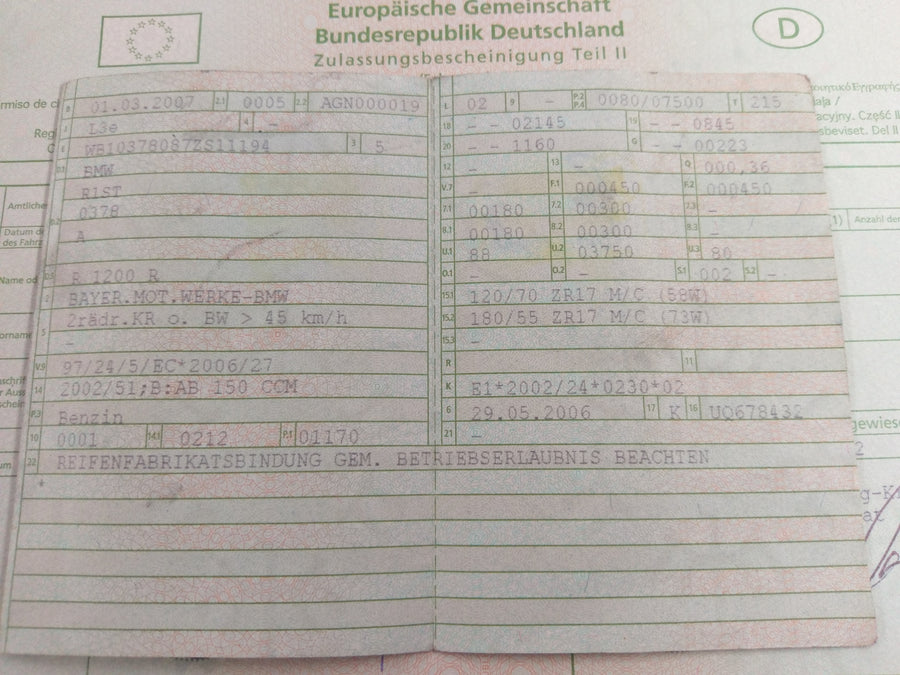 Europäische Gemeinschaft
D
Bundesrepublik Deutschland
Zulassungsbescheinigung Teil II
ermiso de ci
Reg
Amtliche
Datum d
des Fahrz
Name od
orname
schrift
r Auss
schein
um
B 01.03.2007 2.1 0005 2.2 AGN000019
J L3e 4 -
E WB10378087ZS11194 3 5
D.1 BMW
R1ST
D.2 0378
A
D.3 R 1200 R
2 BAYER.MOT.WERKE-BMW
5 2rädr.KR o. BW > 45 km/h
-
V.9 97/24/5/EC*2006/27
14 2002/51;B:AB 150 CCM
P.3 Benzin
10 0001 14.1 0212 P.1 01170
L 02 9 - P.2 P.4 0080/07500 T 215
18 - - 02145 19 - - 0845
20 - - 1160 G - - 00223
12 - 13 - Q 000,36
V.7 - F.1 000450 F.2 000450
7.1 00180 7.2 00300 7.3 -
8.1 00180 8.2 00300 8.3 -
U.1 88 U.2 03750 U.3 80
O.1 - O.2 - S.1 002 S.2 -
15.1 120/70 ZR17 M/C (58W)
15.2 180/55 ZR17 M/C (73W)
15.3 -
R 11
K E1*2002/24*0230*02
6 29.05.2006 17 K 16 UO678432
21 -
22 REIFENFABRIKATSBINDUNG GEM. BETRIEBSERLAUBNIS BEACHTEN
*
acyjny. Część II
sbeviset. Del II
Anzahl der
gewiese
2
g-Kr
at